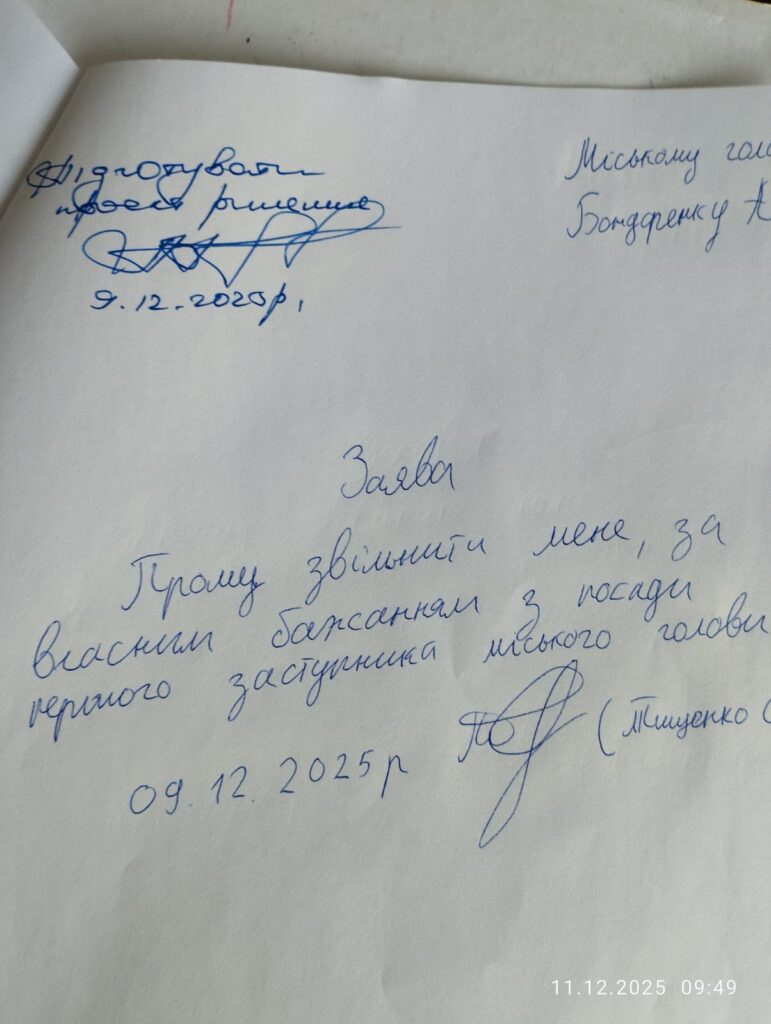 Підготувати
проект рішення
9.12.2025р.
Міському гол
Бондаренку А
Заява
Прошу звільнити мене, за
власним бажанням з посади
першого заступника міського голови
(Тищенко
09.12.2025р
11.12.2025 09:49